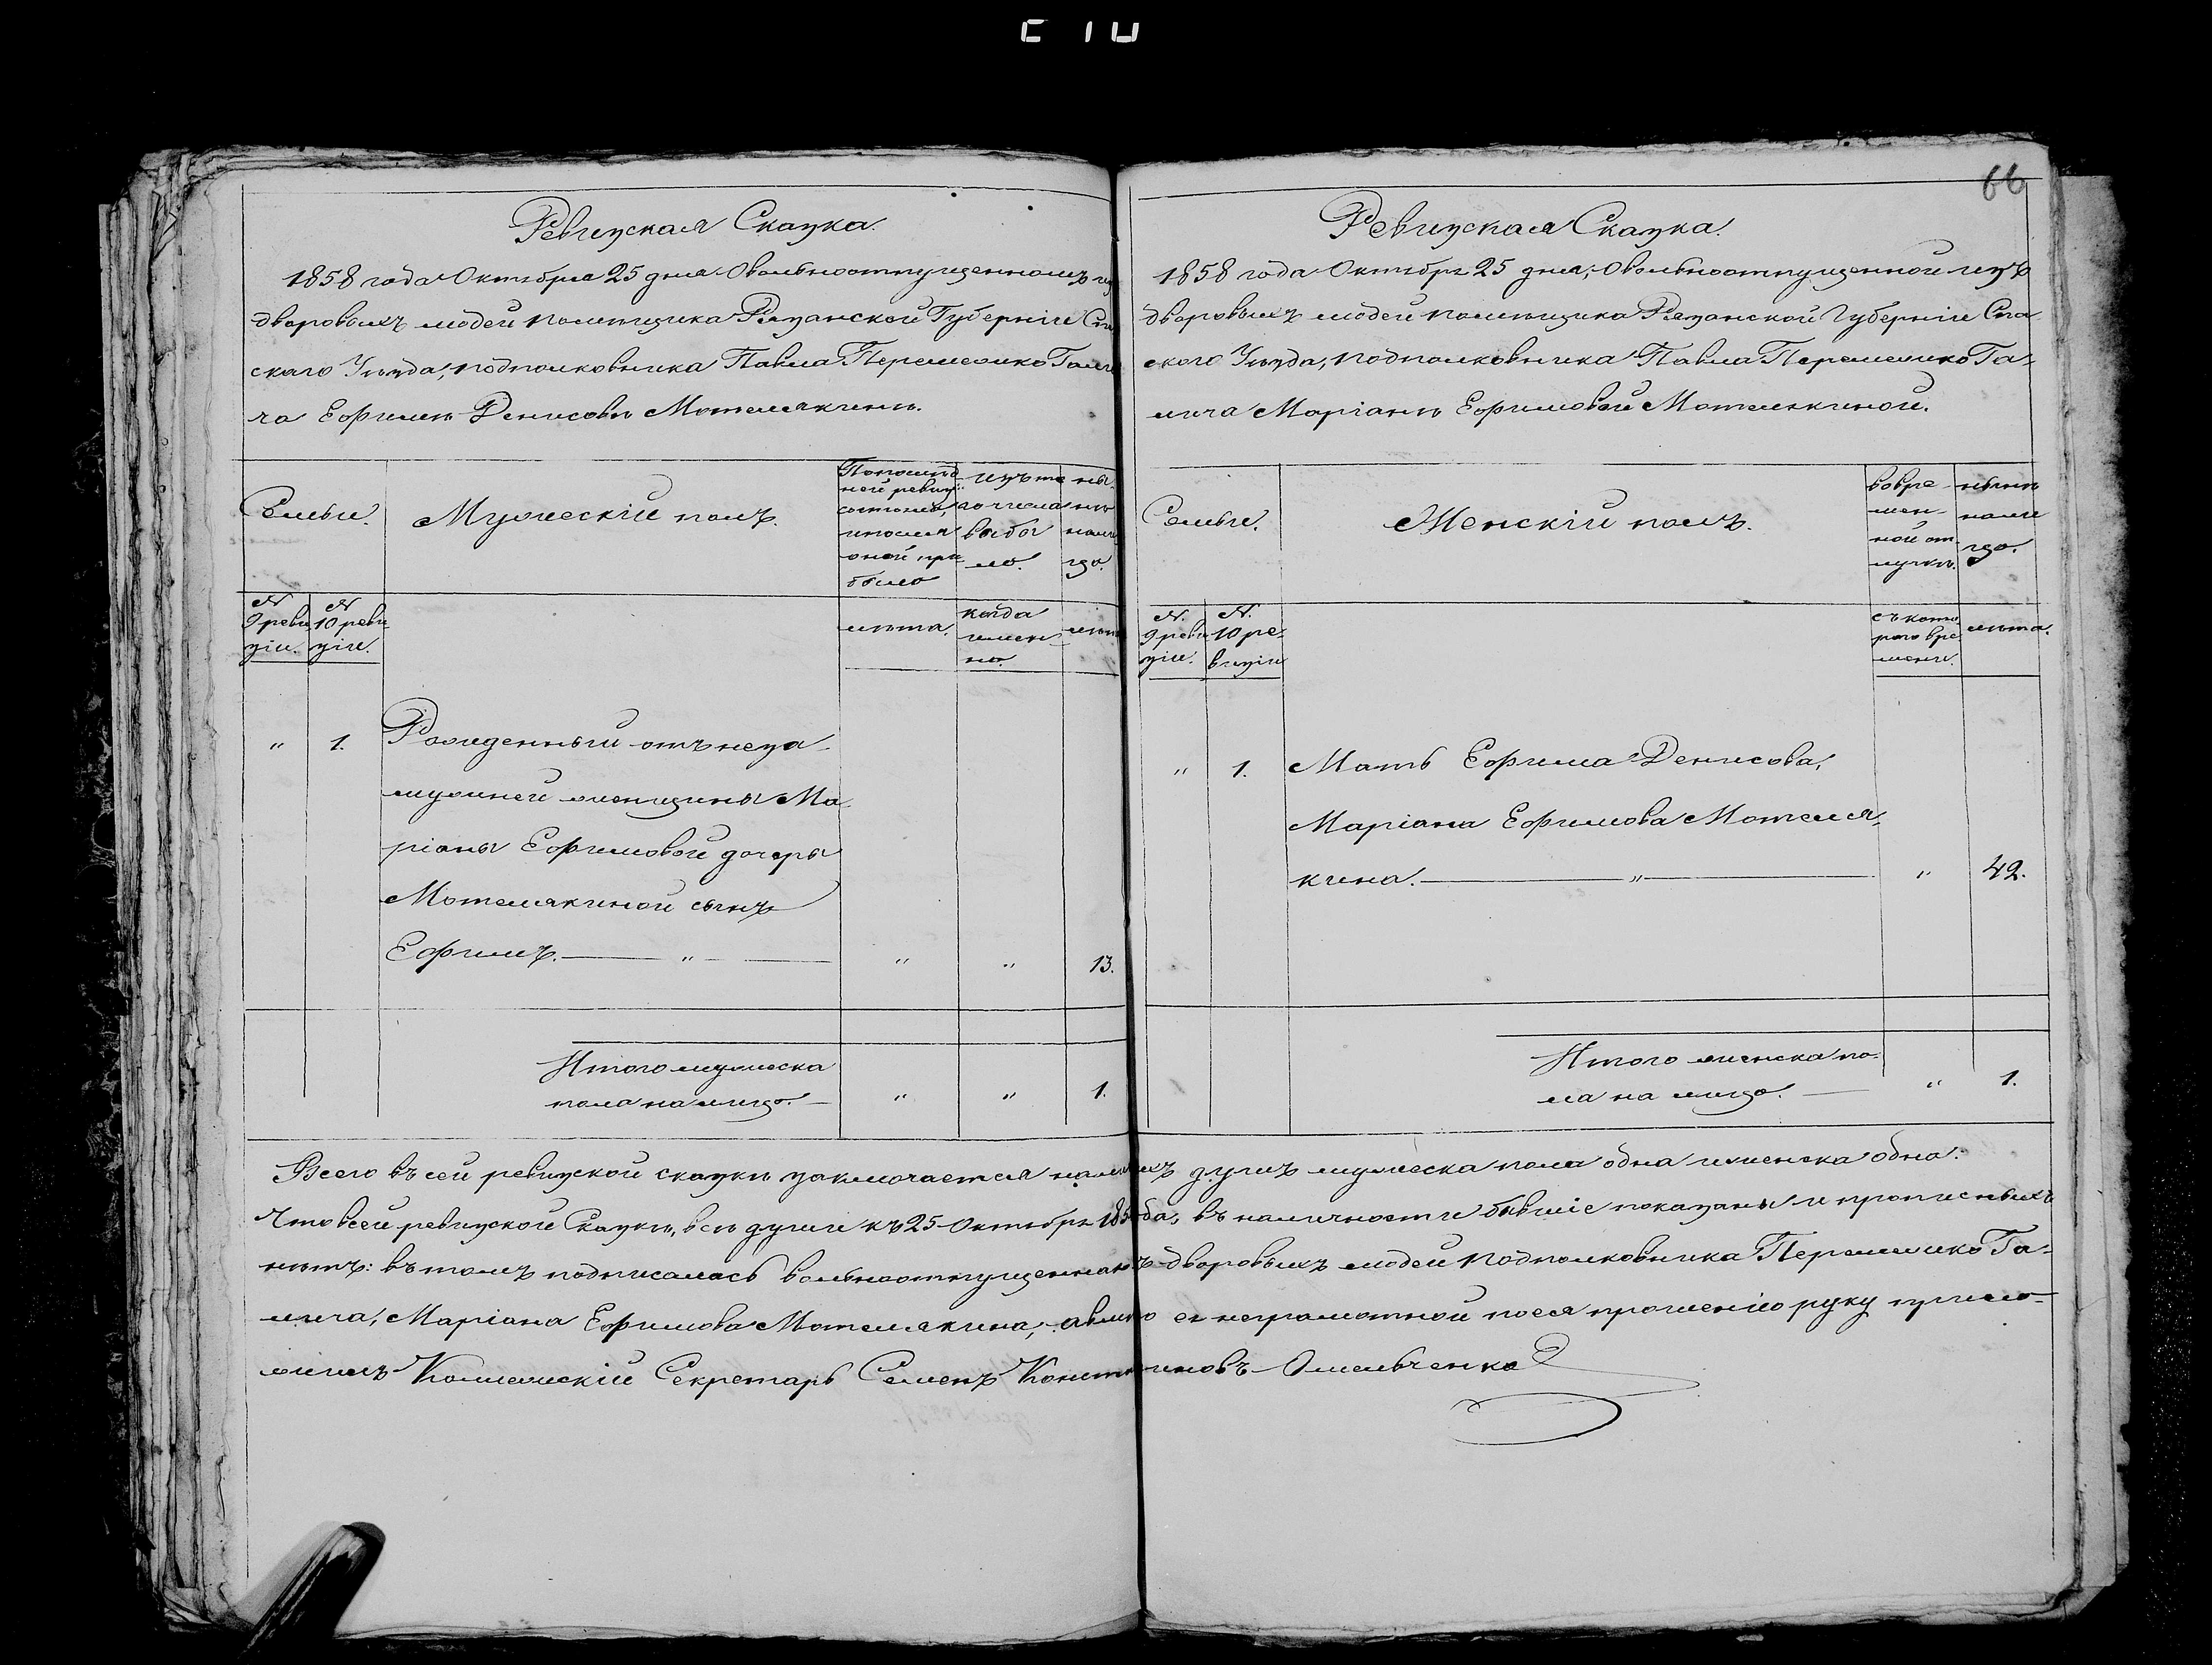 66
Ревизская Сказка.
1858 года Октября 25 дня. О вольноотпущенномъ из
дворовыхъ людей помещика Рязанской Губернiи Спа
скаго Уѣзда, подполковника Павла Перемежко Гали
ча Ефимѣ Денисовѣ Мотелякинѣ.
Семьи.
Мужескiй полъ.
По послѣд
ней ревизiи
состояло,
и послѣ
оной при
было
изъ то
го числа
выбы
ло.
ны
нѣ
нали
цо.
№
9 реви
зiи.
№
10 реви
зiи.
лѣта.
когда
имен
но.
лѣта
" 1. Рожденный отъ неза
мужней женщины Ма
рiаны Ефимовой дочеры
Мотелякиной сынъ
Ефимъ. " " " 13.
Итого мужеска
пола на лицо. " " 1.
Ревизская Сказка.
1858 года Октября 25 дня, О вольноотпущенной изъ
дворовыхъ людей помещика Рязанской Губернiи Спа
ского Уѣзда, подполковника Павла Перемежко Га-
лича Марiанѣ Ефимовой Мотелякиной.
Семьи.
Женскiй полъ.
во вре
мен
ной от
лучкѣ.
нынѣ
нали
цо.
№.
9 реви
зiи.
№.
10 ре
визiи
съ кото
раго вре
мени.
лѣта.
" 1. Мать Ефима Денисова,
Марiана Ефимова Мотеля-
кина. " " 42.
Итого женска по-
ла на лицо. " 1.
Всего въ сей ревизской сказкѣ заключается наличныхъ душъ мужеска пола одна и женска одна.
Что в сей ревизской Сказкѣ, всѣ души къ 25 Октября 1858 года, въ наличности бывшiе показаны и прописныхъ
нѣтъ: въ томъ подписалась вольноотпущенная изъ дворовыхъ людей подполковника Перемежко Га-
лича, Марiана Ефимова Мотелякина, а вмѣсто ея неграмотной по ея прошенiю руку прило-
жилъ Коллежскiй Секретарь Семенъ Константиновъ Омельченко